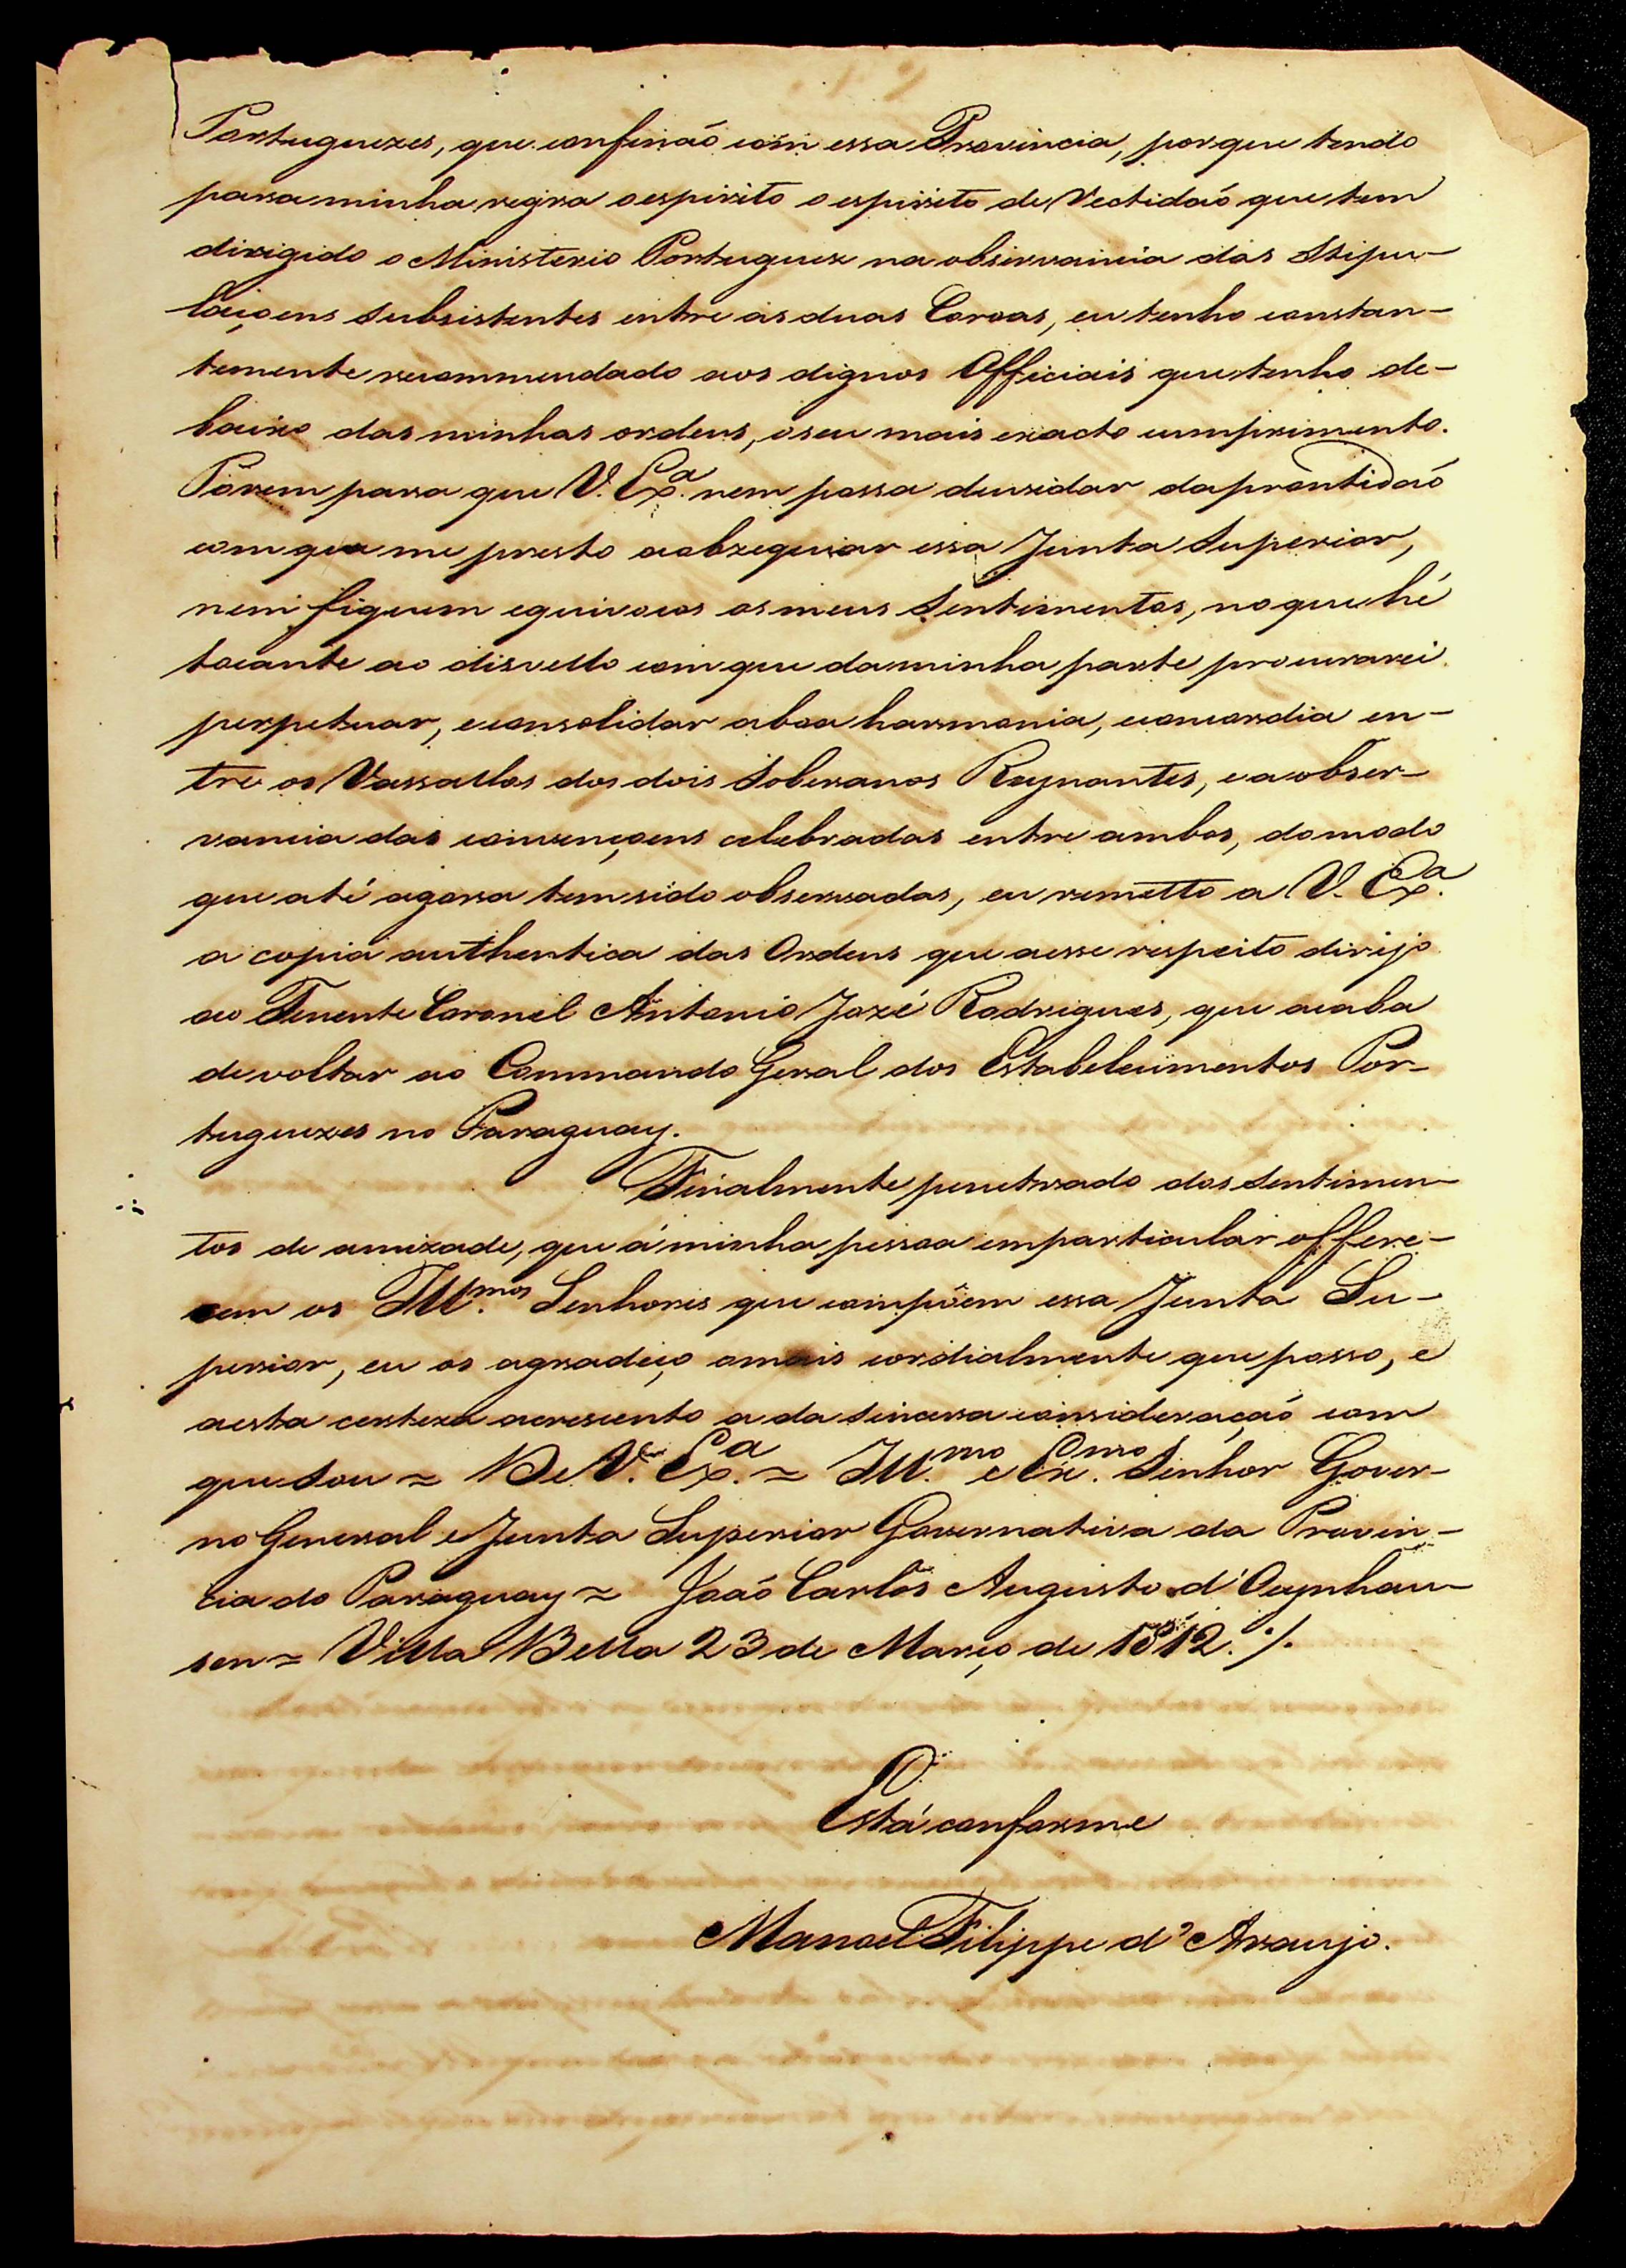 Portuguezes, que confinaõ com essa Provincia, porque tendo
para minha regra o espirito o espirito de Rectidaõ que tem
dirigido o Ministerio Portuguez na observancia das Stipu-
laçoens Subsistentes entre as duas Coroas, eu tenho constan-
temente recommendado aos dignos Officiais que tenho de-
baixo das minhas ordens, o seu mais exacto cumprimento.
Porem para que V. Exª. nem possa duvidar da prontidaõ
com que me presto a obzequiar essa Junta Superior,
nem fiquem equivocos os meus Sentimentos, no que hé
tocante ao disvello com que da minha parte procurarei
perpetuar, e consolidar a boa harmonia, e concordia en-
tre os Vassallos dos dois Soberanos Reynantes, e a obser-
vancia das convençoens celebradas entre ambos, do modo
que até agora tem sido observadas, eu remetto a V. Exª.
a copia authentica das Ordens que a esse respeito dirijo
ao Tenente Coronel Antonio Jozé Rodrigues, que acaba
de voltar ao Commando Geral dos Estabelecimentos Por-
tuguezes no Paraguay.
Finalmente penetrado dos Sentimen-
tos de amizade, que á minha pessoa em particular offere-
cem os Illmos. Senhores que compõem essa Junta Su-
perior, eu os agradeço o mais cordialmente que posso, e
a esta certeza acrescento a da Sincera consideraçaõ com
que Sou = De V. Exª. = Illmo. e Exmo. Senhor Gover-
no General e Junta Superior Governativa da Provin-
cia do Paraguay = Joaõ Carlos Augusto d'Oeynhau-
sen = Villa Bella 23 de Março de 1812. ./.
Está conforme
Manoel Filippe d'Araujo.